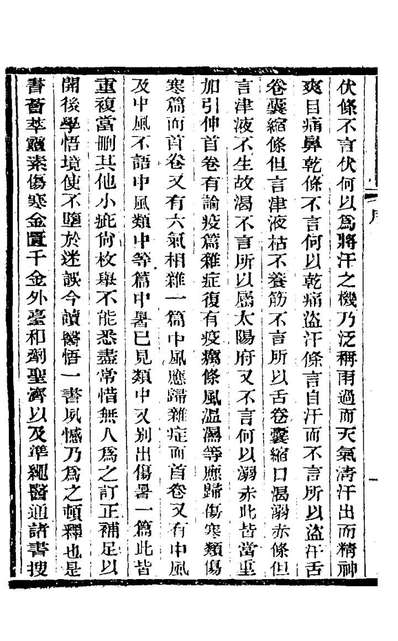 伏條不言伏何以爲將汗之機乃泛稱雨過而天氣淸汗出而精神
爽目痛鼻乾條不言何以乾痛盜汗條言自汗而不言所以盜汗舌
卷囊縮條但言津液枯不養筋不言所以舌卷囊縮口渴溺赤條但
言津液不生故渴不言所以屬太陽府又不言何以溺赤此皆當重
加引伸首卷有論疫篇雜症復有疫癘條風溫濕等應歸傷寒類傷
寒篇而首卷又有六氣相雜一篇中風應歸雜症而首卷又有中風
及中風不語中風類中等篇中暑已見類中又別出傷暑一篇此皆
重複當刪其他小疵尙枚舉不能悉盡常惜無人爲之訂正補足以
開後學悟境使不墮於迷誤今讀醫悟一書夙憾乃爲之頓釋也是
書薈萃靈素傷寒金匱千金外臺和劑聖濟以及準繩醫通諸書搜
序